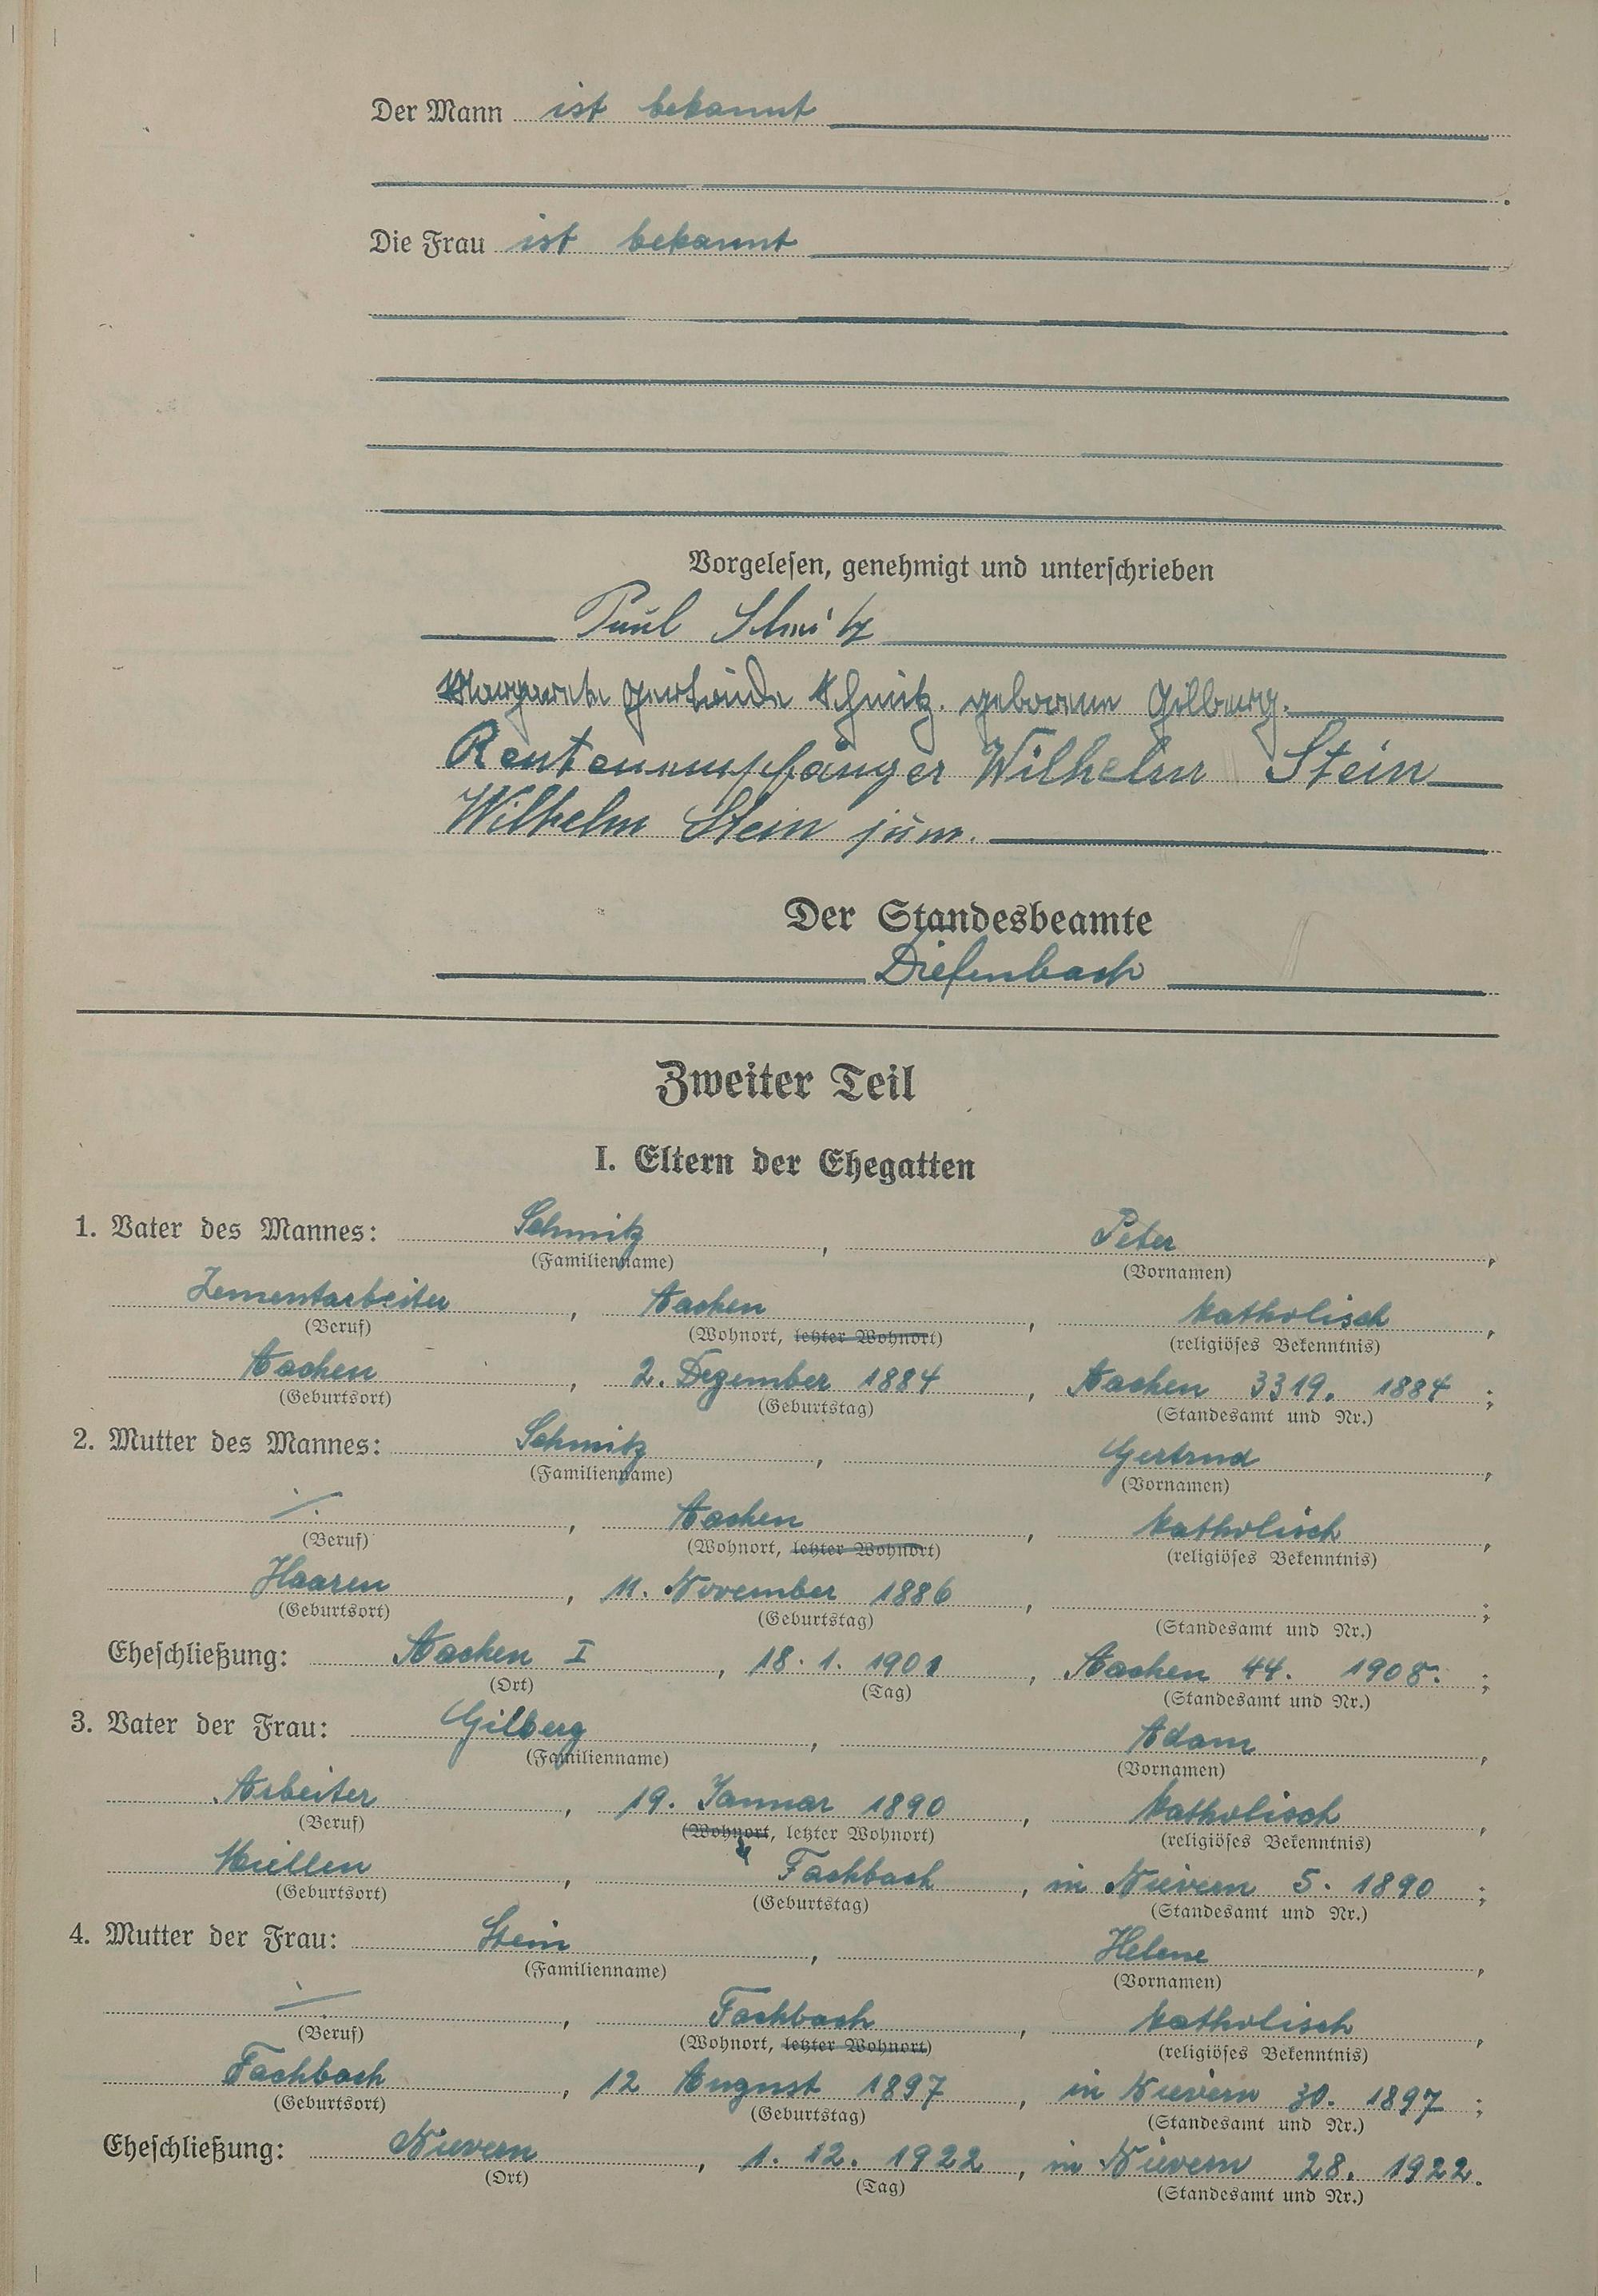 Der Mann ist bekannt
Die Frau ist bekannt
Vorgelesen, genehmigt und unterschrieben
Paul Schmitz
Margarete Gertrude Schmitz. geborene Gilberg.
Rentenempfänger Wilhelm Stein
Wilhelm Stein jun.
Der Standesbeamte
Diefenbach
Zweiter Teil
I. Eltern der Ehegatten
1. Vater des Mannes: Schmitz, Peter,
(Familienname) (Vornamen)
Zementarbeiter, Aachen, katholisch,
(Beruf) (Wohnort, letzter Wohnort) (religiöses Bekenntnis)
Aachen, 2. Dezember 1884, Aachen 3319. 1884;
(Geburtsort) (Geburtstag) (Standesamt und Nr.)
2. Mutter des Mannes: Schmitz, Gertrud,
(Familienname) (Vornamen)
∕., Aachen, katholisch,
(Beruf) (Wohnort, letzter Wohnort) (religiöses Bekenntnis)
Haaren, 11. November 1886,;
(Geburtsort) (Geburtstag) (Standesamt und Nr.)
Eheschließung: Aachen I, 18. 1. 1901, Aachen 44. 1908.;
(Ort) (Tag) (Standesamt und Nr.)
3. Vater der Frau: Gilberg, Adam,
(Familienname) (Vornamen)
Arbeiter, 19. Januar 1890, katholisch,
(Beruf) (Wohnort, letzter Wohnort) (religiöses Bekenntnis)
Miellen, Fachbach, in Nievern 5. 1890;
(Geburtsort) (Geburtstag) (Standesamt und Nr.)
4. Mutter der Frau: Stein, Helene,
(Familienname) (Vornamen)
∕., Fachbach, katholisch,
(Beruf) (Wohnort, letzter Wohnort) (religiöses Bekenntnis)
Fachbach, 12 August 1897, in Nievern 30. 1897;
(Geburtsort) (Geburtstag) (Standesamt und Nr.)
Eheschließung: Nievern, 1. 12. 1922, in Nievern 28. 1922.
(Ort) (Tag) (Standesamt und Nr.)